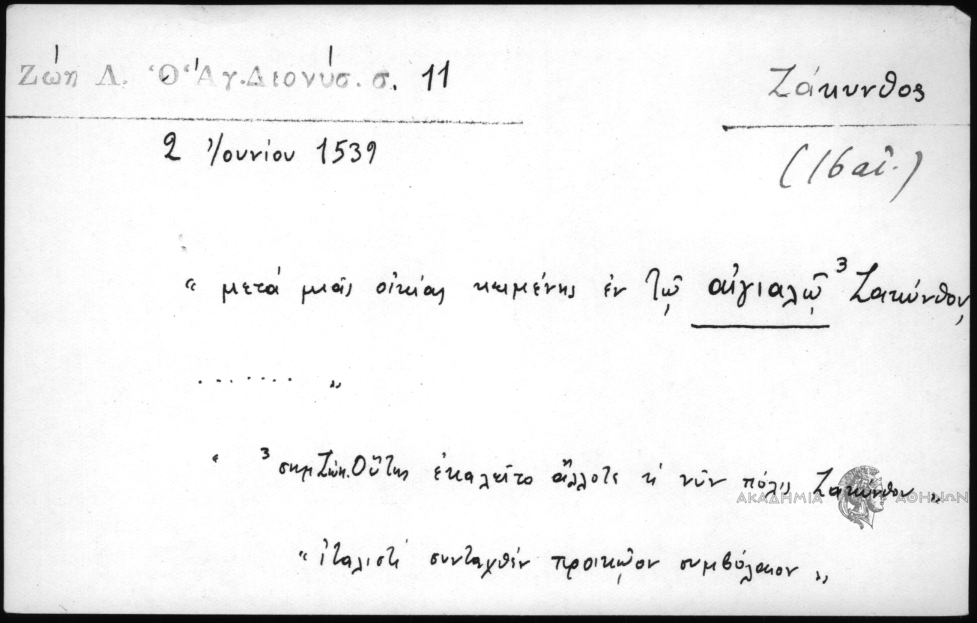 Ζώη Λ. Ὁ Ἅγ. Διονύσ. σ. 11
Ζάκυνθος
2 Ἰουνίου 1539
(16 αἰ.)
“ μετά μιᾶς οἰκίας κειμένης ἐν τῷ αἰγιαλῷ ³ Ζακύνθου
....... „
“ ³ σημ. Ζώη. Οὕτως ἐκαλεῖτο ἄλλοτε ἡ νῦν πόλις Ζακύνθου „
ΑΚΑΔΗΜΙΑ ΑΘΗΝΩΝ
“ ἰταλιστί συνταχθέν προικῷον συμβόλαιον „